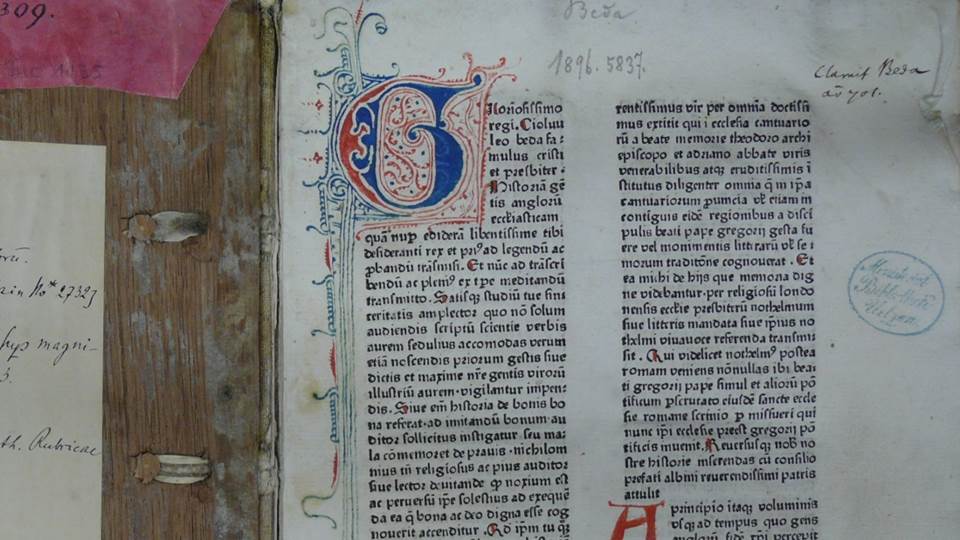 309.
Beda.
1896. 5837.
Claruit Beda
aō 701.
ain No 27323
hys magni-
3.
th. Rubricae
Gloriosissimo
regi. Cioluu
leo beda fa:
mulus cristi
et presbiter :
Historiā gē
tis anglorū
ecclesiasticam
quā nup ediderā libentissime tibi
desideranti rex et pri⁹ ad legendū ac
ꝓbandū trāsmisi. Et nūc ad trāscri
bendū ac pleni⁹ ex tꝑe meditandū
transmitto. Satisq; studiū tue sinc
ceritatis amplector quo nō solum
audiendis scriptū scientie verbis
aurem sedulius accomodas verum
etiā noscendis priorum gestis siue
dictis et maxime nr̄e gentis virorū
illustriū aurem vigilantur impen:
dis. Siue em̄ historia de bonis bo
na referat ad imitandū bonum au
ditor sollicitus instigatur seu ma:
la cōmemoret de prauis nichilom
nius tn̄ religiosus ac pius auditor
siue lector deuitande ꝙ noxium est
ac peruersū ipē solestius ad exequē
da ea q̄ bona ac deo digna esse cog
nouerit accenditur. Ad ip̄m tu q̄
rentissimus vir per omnia doctissi
mus extitit qui ī ecclesia cantuario
rū a beate memorie theodoro archi
episcopo et adriano abbate viris
venerabilibus atq; eruditissimis ī
stitutus diligenter omnia q̄ in ip̄a
cantuariorum ꝓuincia vl̄ etiam in
contiguis eidē regionibus a disci
pulis beati pape gregorij gesta fu
ere vel monimentis litterarū vl̄ se :
niorum traditōne cognouerat. Et
ea michi de hijs que memoria dig
ne videbantur per religiosū londo
nensis ecclie presbiterū nothelmum
siue litteris mandata siue ip̄ius no
thelmi viua uoce referenda transmi
sit. Qui videlicet nothelm⁹ postea
romam veniens nōnullas ibi beai
ti gregorij pape simul et aliorū pō
tificum ꝑscrutato eiusdē sancte eccle
sie romane scrinio ꝑ missueri qui
nunc ip̄i ecclesie preest gregorij pō
tificis inuenit. Reuersusq; nob̄ no
stre historie inserendas cū consilio
prefati albini reuerendissimi patris
attulit
A principio itaq; voluminis
vsq; ad tempus quo gens
anglorū fidē xp̄i percepit